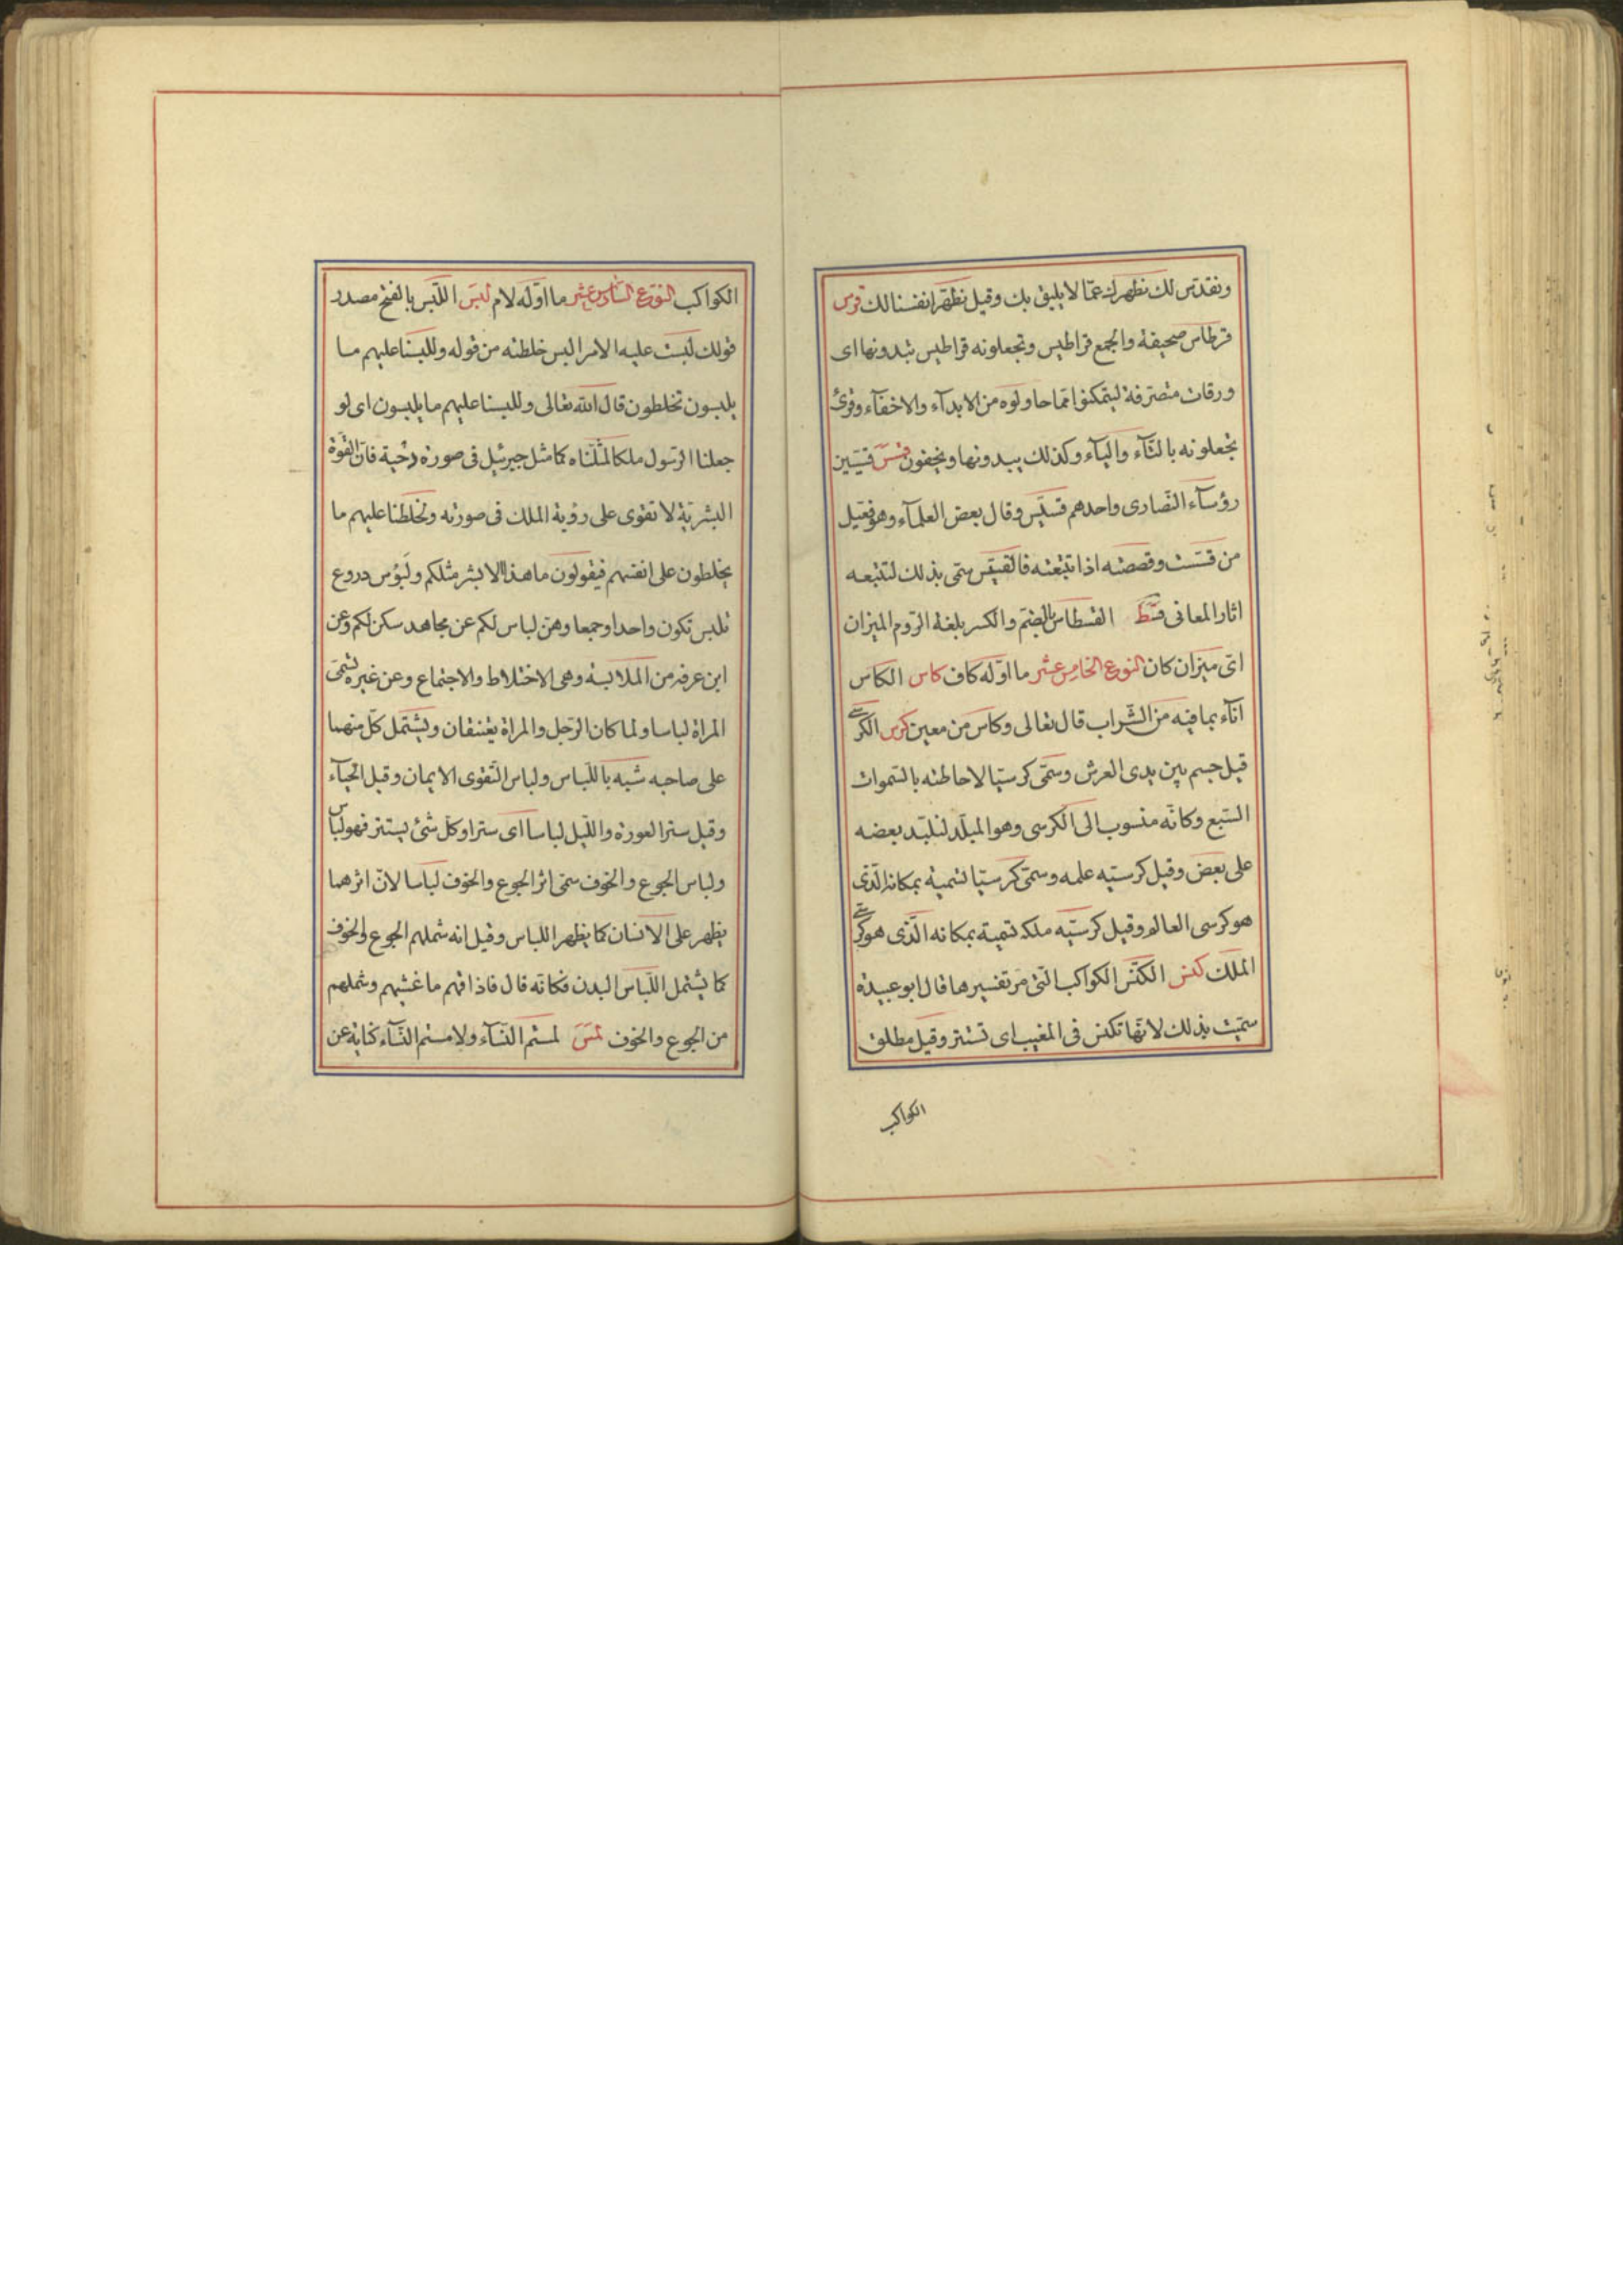 ونقدّس لك نطهرك عمّا لا يليق بك وقيل نطهّر انفسنا لك قرس
قرطاس صحيفة والجمع قراطيس وتجعلونه قراطيس تبدونها اى
ورقات متصرفة ليتمكنوا ممّا حاولوه من الابدآء والاخفآء وقرئ
تجعلونه بالتآء واليآء وكذلك يبدونها ويخفون قسس قسّيسين
رؤسآء النّصارى واحدهم قسّيس وقال بعض العلمآء وهو فعّيل
من قسست وقصصته اذا تتبّعته فالقسّيس سمّى بذلك لتتبّعه
اثار المعانى قسط القسطاس بالضم والكسر بلغة الرّوم الميزان
اىّ ميزان كان النوع الخامس عشر ما اوّله كاف كاس الكاس
انآء بما فيه من الشّراب قال تعالى وكاس من معين كرس الكرسى
قيل جسم بين يدى العرش وسمّى كرسيّا لاحاطته بالسّموات
السّبع وكانّه منسوب الى الكرسى وهو الملبّد لتلبّد بعضه
على بعض وقيل كرسيّه علمه وسمّى كرسيّا تسمية بمكانه الّذى
هو كرسى العالم وقيل كرسيّه ملكه تسمية بمكانه الّذى هو كرسى
الملك كنس الكنّس الكواكب الّتى مرّ تفسيرها قال ابو عبيدة
سمّيت بذلك لانّها تكنس فى المغيب اى تستتر وقيل مطلق
الكواكب
الكواكب النوع السادس عشر ما اوّله لام لبس اللّبس بالفتح مصدر
قولك لبست عليه الامر البس خلطته من قوله وللبسنا عليهم ما
يلبسون تخلطون قال الله تعالى وللبسنا عليهم ما يلبسون اى لو
جعلنا الرّسول ملكا لمثّلناه كما مثل جبرئيل فى صورة دحية فانّ القوّة
البشريّة لا تقوى على رؤية الملك فى صورته ولخلطنا عليهم ما
يخلطون على انفسهم فيقولون ما هذا الا بشر مثلكم ولبوس دروع
تلبس تكون واحدا وجمعا وهنّ لباس لكم عن مجاهد سكن لكم وعن
ابن عرفه من الملابسة وهى الاختلاط والاجتماع وعن غيره تسمّى
المراة لباسا ولما كان الرّجل والمراة يعتنقان ويشتمل كلّ منهما
على صاحبه شبه باللّباس ولباس التّقوى الايمان وقيل الحيآء
وقيل ستر العورة واللّيل لباسا اى سترا وكلّ شئ يستتر فهو لباس
ولباس الجوع والخوف سمّى اثر الجوع والخوف لباسا لانّ اثرهما
يظهر على الانسان كما يظهر اللباس وقيل انه شملهم الجوع والخوف
كما يشتمل اللّباس البدن فكانّه قال فاذاقهم ما غشيهم وشملهم
من الجوع والخوف لمس لمستم النّسآء ولامستم النّسآء كناية عن